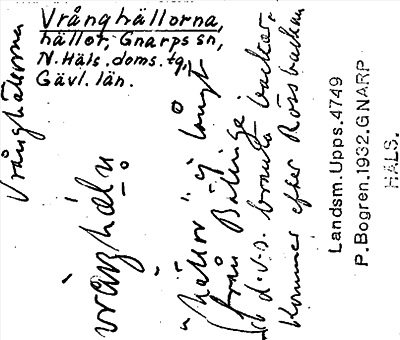 Vrånghällorna,
hällor, Gnarps sn,
N. Häls. doms. tg,
Gävl. län.
Vrånghällorna
"hällor" ej långt
från Bälinge
d.v.s. branta backar.
Kommer efter Rossbacken
Landsm. Upps. 4749
P. Bogren. 1932. GNARP
HÄLS.